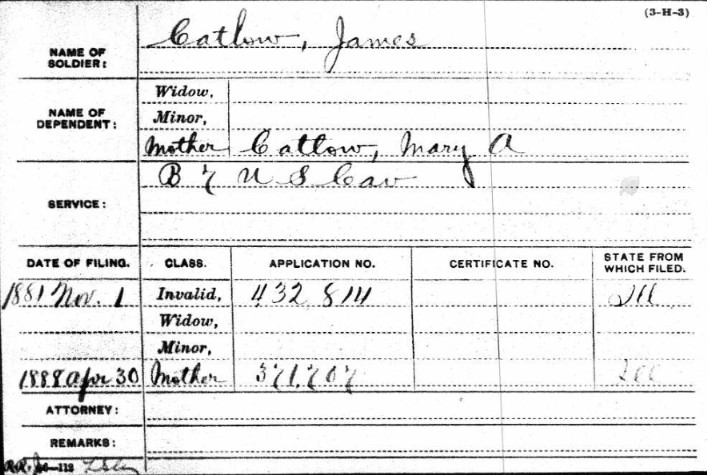 (3-H-3)
NAME OF SOLDIER: Catlow, James
NAME OF DEPENDENT: Widow,
Minor,
Mother Catlow, Mary A
SERVICE: B 7 U S Cav
DATE OF FILING. CLASS. APPLICATION NO. CERTIFICATE NO. STATE FROM WHICH FILED.
1881 Nov. 1 Invalid, 432 814 Ill
Widow,
Minor,
1888 Apr 30 Mother 371,707 Ill
ATTORNEY:
REMARKS:
—112